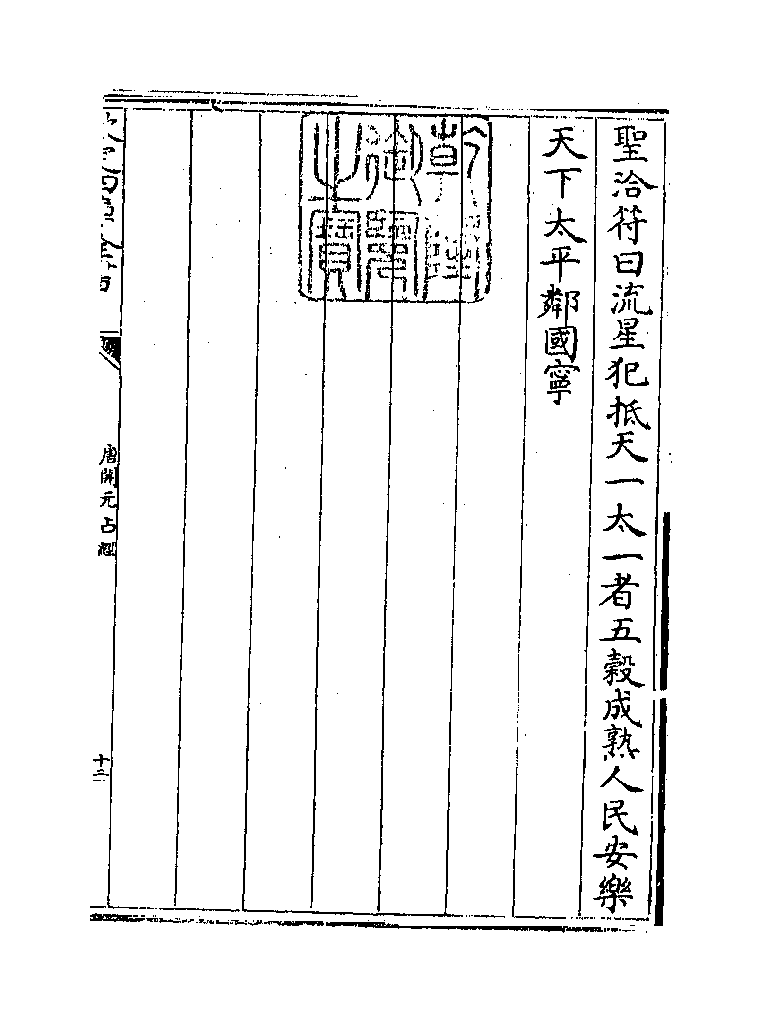 聖洽符曰流星犯抵天一太一者五穀成熟人民安樂
天下太平鄰國寧
乾隆
御覽
之寶
唐開元占經
十二